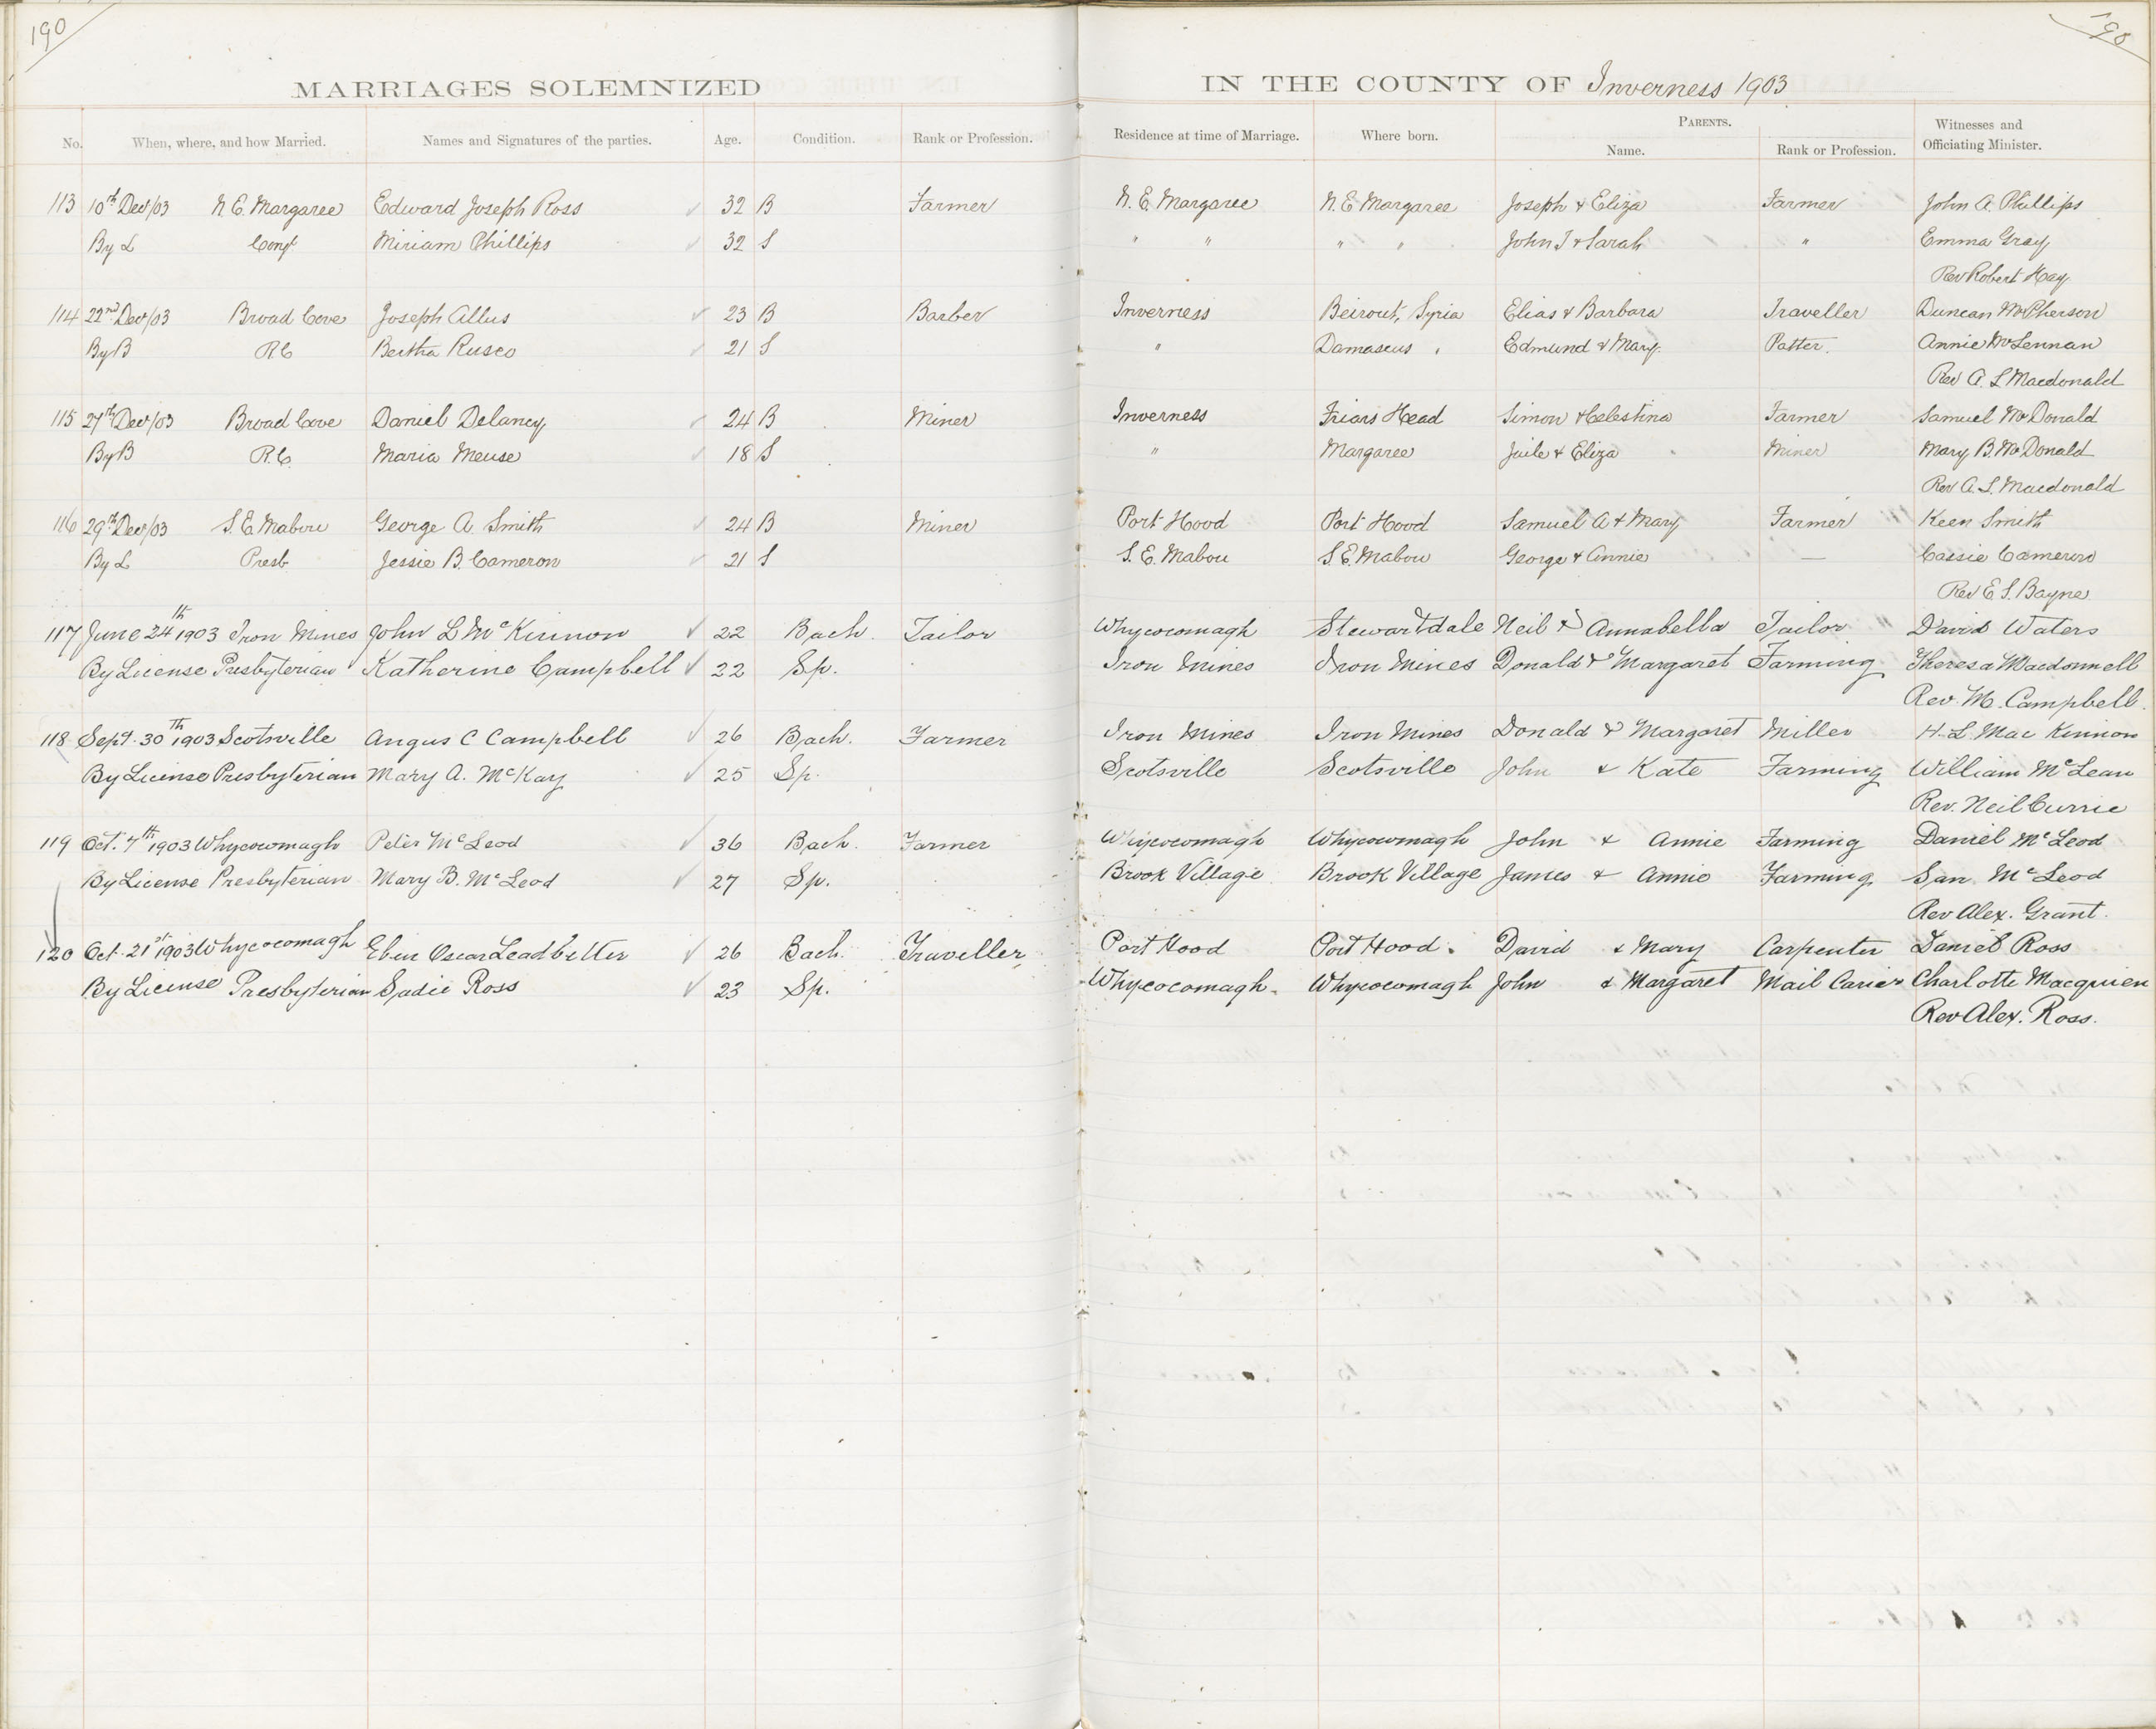 190
190
MARRIAGES SOLEMNIZED IN THE COUNTY OF Inverness 1903
No. When, where, and how Married. Names and Signatures of the parties. Age. Condition. Rank or Profession. Residence at time of Marriage. Where born. PARENTS. Name. Rank or Profession. Witnesses and Officiating Minister.
113 10th Dec/03 N. E. Margaree Edward Joseph Ross 32 B Farmer N. E. Margaree N. E Margaree Joseph & Eliza Farmer John A. Phillips
By L Congl Miriam Phillips 32 S " " " " John J & Sarah " Emma Gray
Rev Robert Hay
114 22nd Dec/03 Broad Cove Joseph Allus 23 B Barber Inverness Beirout, Syria Elias & Barbara Traveller Duncan McPherson
By B R C Bertha Ruseo 21 S " Damascus " Edmund & Mary Potter. Annie McLennan
Rev A. L Macdonald
115 27th Dec/03 Broad Cove Daniel Delaney 24 B Miner Inverness Friars Head Simon & Celestina Farmer Samuel McDonald
By B R. C. Maria Meuse 18 S " Margaree & Eliza Miner Mary B. McDonald
Rev A. L. Macdonald
116 29th Dec/03 S. E. Mabou George A. Smith 24 B Miner Port Hood Port Hood Samuel A & Mary Farmer Keen Smith
By L Presb Jessie B. Cameron 21 S S. E. Mabou S. E. Mabou George & Annie — Cassie Cameron
Rev E. S. Bayne
117 June 24th 1903 Iron Mines John L McKinnon 22 Bach. Tailor Whycocomagh Stewartdale Neil & Annabella Tailor David Waters
By License Presbyterian Katherine Campbell 22 Sp. Iron Mines Iron Mines Donald & Margaret Farming Theresa Macdonnell
Rev. M. Campbell.
118 Sept. 30th 1903 Scotsville Angus C Campbell 26 Bach. Farmer Iron Mines Iron Mines Donald & Margaret Miller H. L. Mac Kinnon
By License Presbyterian Mary A. McKay 25 Sp. Scotsville Scotsville John & Kate Farming William McLean
Rev. Neil Currie
119 Oct. 7th 1903 Whycocomagh Peter McLeod 36 Bach. Farmer Whycocomagh Whycocomagh John & Annie Farming Daniel McLeod
By License Presbyterian Mary B. McLeod 27 Sp. Brook Village Brook Village James & Annie Farming San McLeod
Rev Alex. Grant.
120 Oct. 21st 1903 Whycocomagh Eben Oscar Leadbetter 26 Bach. Traveller Port Hood Port Hood. David & Mary Carpenter Daniel Ross
By License Presbyterian Sadie Ross 23 Sp. Whycocomagh. Whycocomagh John & Margaret Mail Carier Charlotte Macquien
Rev Alex. Ross.